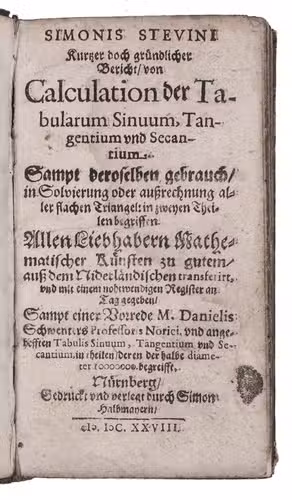 SIMONIS STEVINI
Kurtzer doch gründlicher
Bericht/ von
Calculation der Ta-
bularum Sinuum, Tan-
gentium vnd Secan-
tium.
Sampt deroselben gebrauch/
in Solvierung oder außrechnung al-
ler flachen Triangel: in zweyen Thei-
len begriffen.
Allen Liebhabern Mathe-
matischer Künsten zu gutem/
auß dem Niderländischen transferirt,
vnd mit einem nohtwendigen Register an
Tag gegeben/
Sampt einer Vorrede M. Danielis
Schwenters Professoris Norici, vnd ange-
hefften Tabulis Sinuum, Tangentium vnd Se-
cantium, in theilen/ deren der halbe diame-
ter 10000000. begreifft.
Nürnberg/
Gedruckt vnd verlegt durch Simon
Halbmayern/
cIɔ. Iɔc. XXVIII.